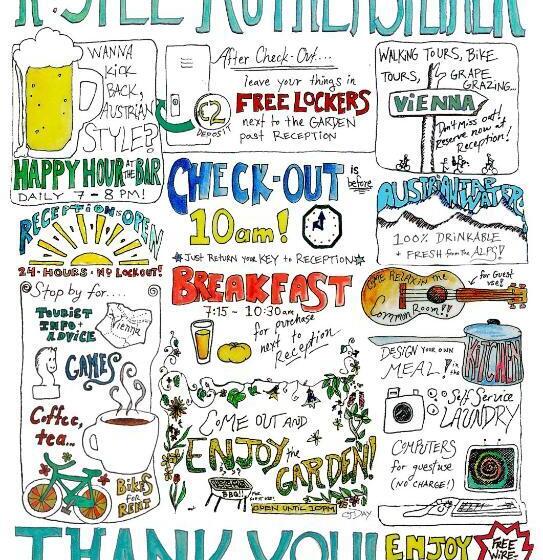 WANNA
KICK
BACK,
AUSTRIAN
STYLE?
HAPPY HOUR AT THE BAR
DAILY 7 - 8 PM!
After Check-Out....
leave your things in
FREE LOCKERS
next to the GARDEN
past RECEPTION
€2
DEPOSIT
WALKING TOURS, BIKE
TOURS, GRAPE
GRAZING...
VIENNA
Don't miss out!
Reserve now at
Reception!
CHECK-OUT is
before
10am!
JUST RETURN YOUR KEY to RECEPTION
RECEPTION OPEN
24-HOURS · NO LOCKOUT!
AUSTRIAN TAP WATER
100% DRINKABLE
+ FRESH from the ALPS!
BREAKFAST
7:15 - 10:30am
for purchase
next to
Reception
COME RELAX IN the
Common Room!!
for Guest
use!
Stop by for....
TOURIST
INFO +
ADVICE
Vienna
GAMES
Coffee,
tea...
BIKES
FOR
RENT
COME OUT AND
ENJOY the
GARDEN!
BBQ!!
OPEN UNTIL 10PM
CJDAY
DESIGN YOUR OWN
MEAL! in the
KITCHEN
Self Service
LAUNDRY
COMPUTERS
for guest use
(NO CHARGE!)
THANK YOU!
ENJOY
FREE
WIRE-